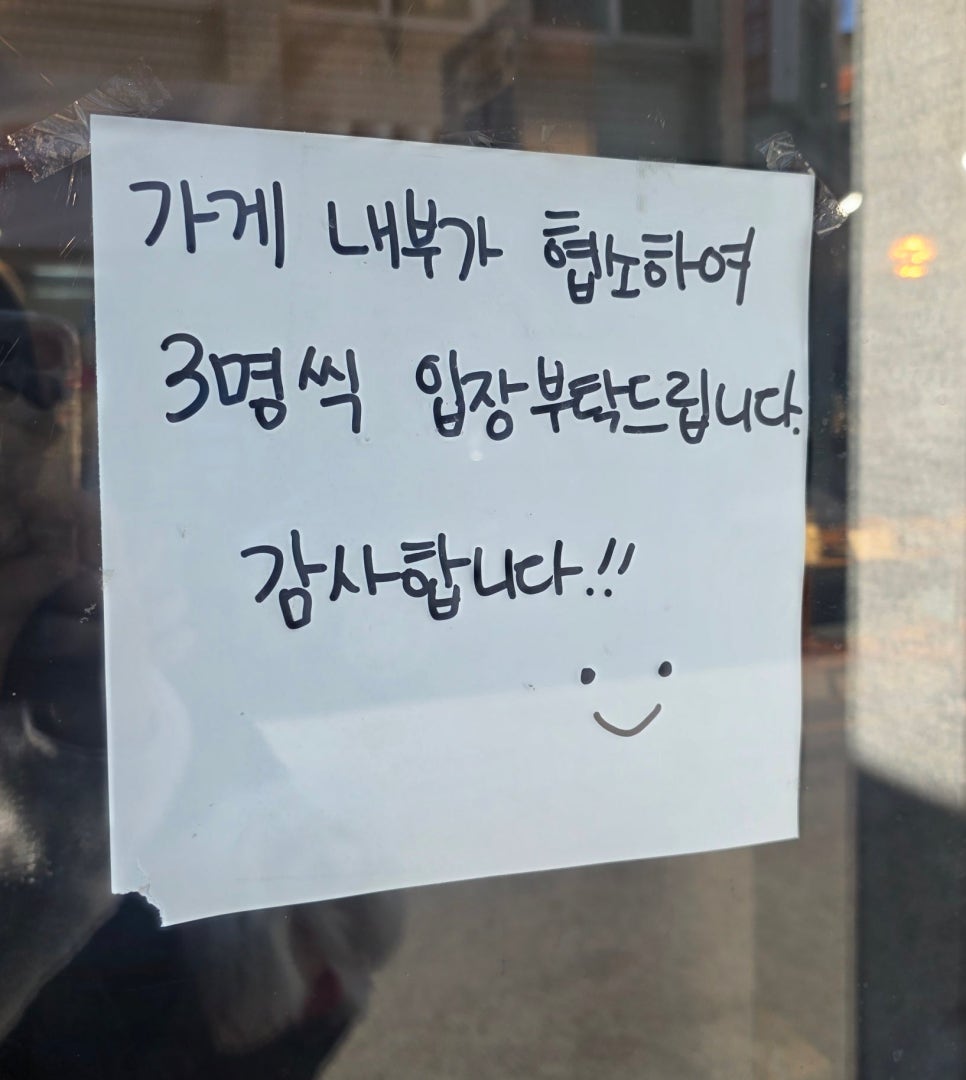 가게 내부가 협소하여
3명씩 입장부탁드립니다.
감사합니다!!